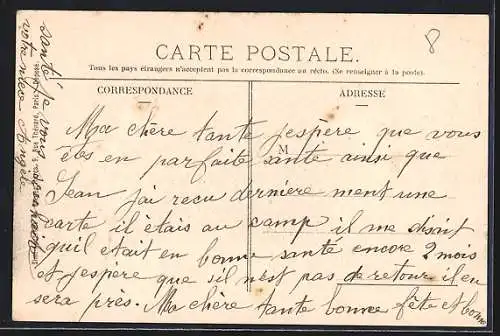 8
CARTE POSTALE.
Tous les pays étrangers n'acceptent pas la correspondance au récto. (Se renseigner à la poste).
CORRESPONDANCE
ADRESSE
M
Ma chère tante jéspère que vous
êtes en parfaite sante ainsi que
Jean j'ai recu derniere ment une
carte il étais au camp il me disait
quil etait en bonne santé encore 2 mois
et jespere que sil n'est pas de retour il en
sera près. Ma chère tante bonne fête et bonne
santé je vous
votre niece Angèle